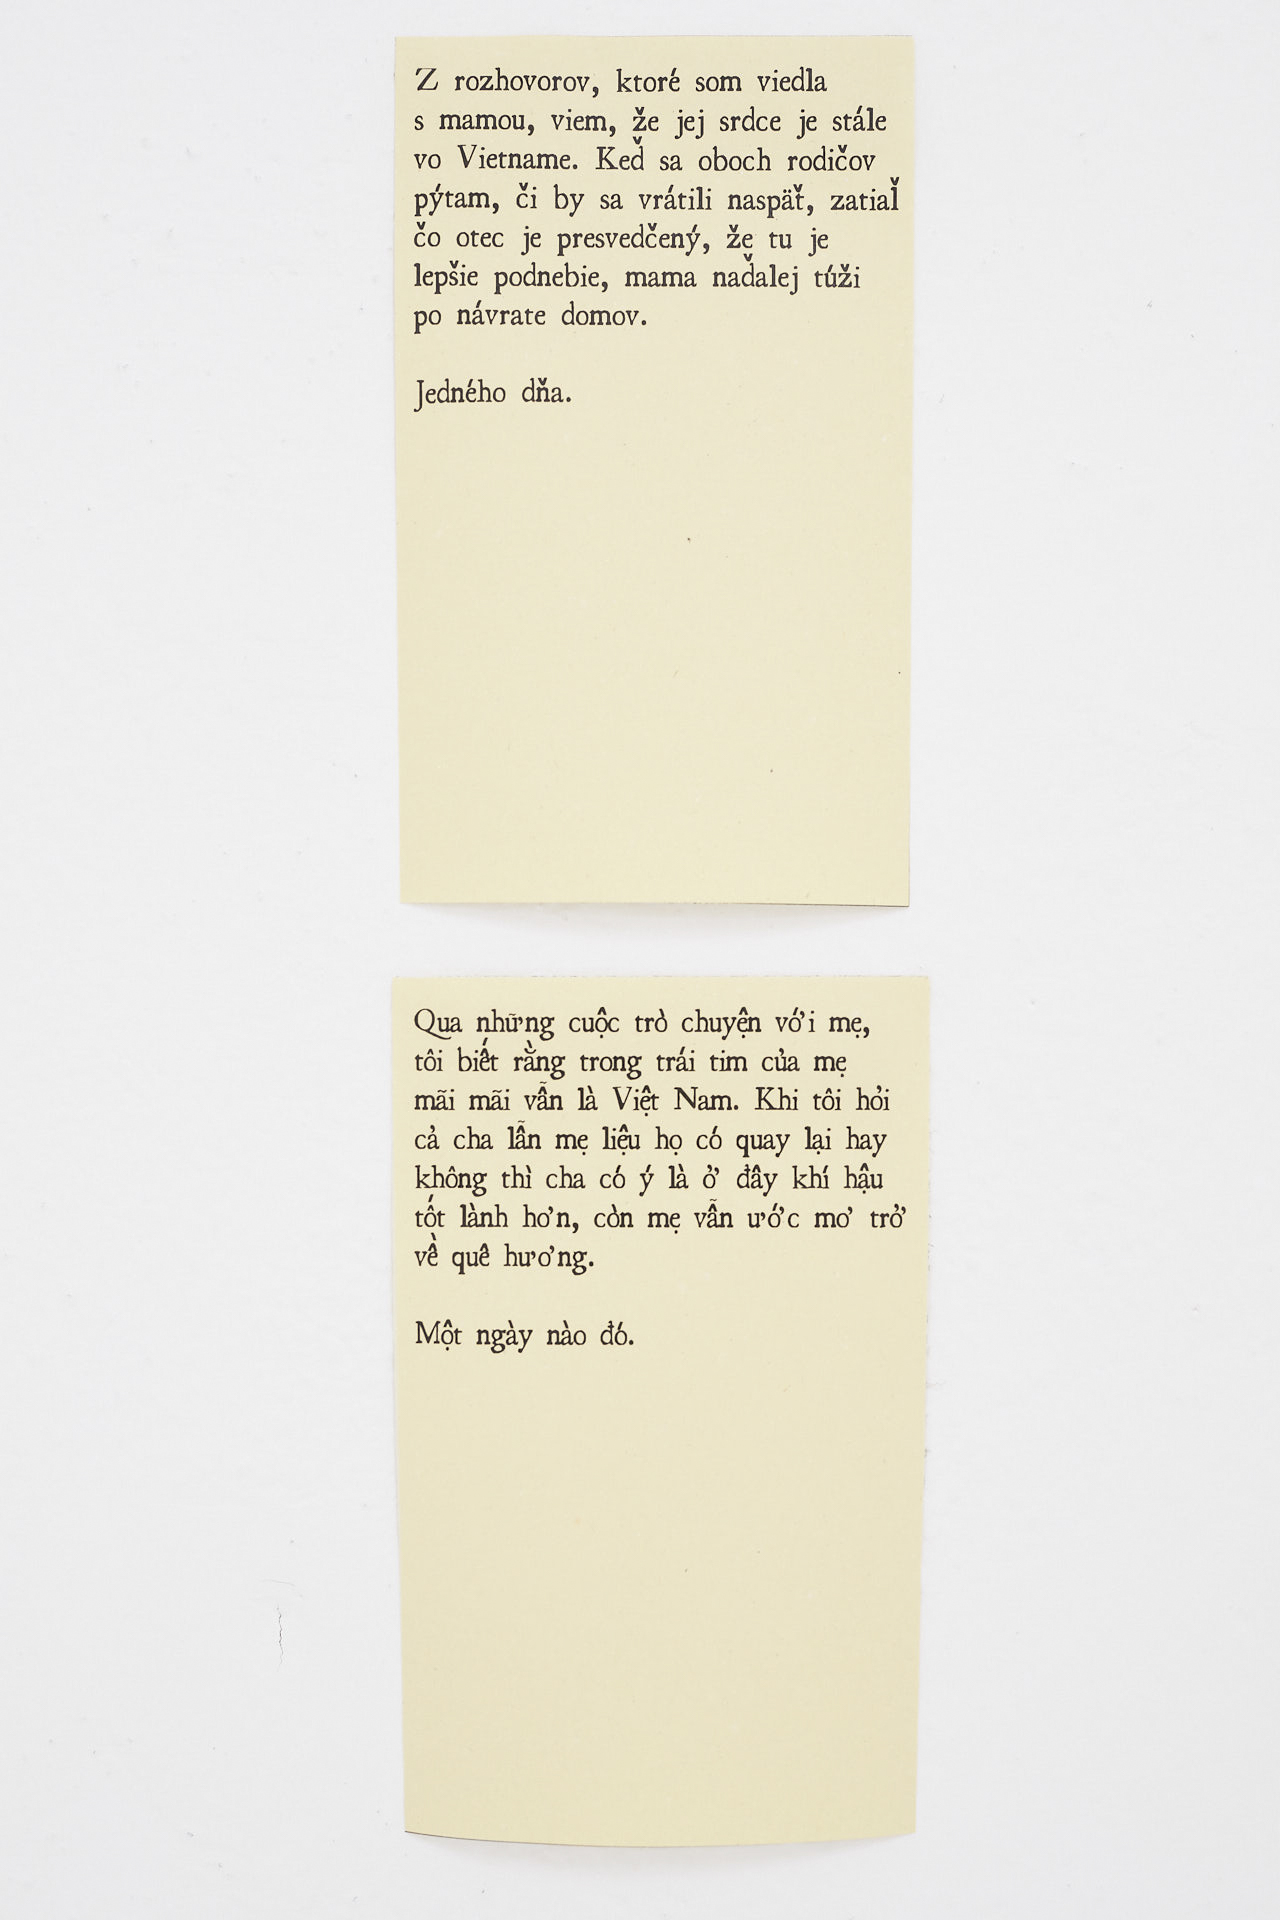 Z rozhovorov, ktoré som viedla
s mamou, viem, že jej srdce je stále
vo Vietname. Keď sa oboch rodičov
pýtam, či by sa vrátili naspäť, zatiaľ
čo otec je presvedčený, že tu je
lepšie podnebie, mama naďalej túži
po návrate domov.
Jedného dňa.
Qua những cuộc trò chuyện với mẹ,
tôi biết rằng trong trái tim của mẹ
mãi mãi vẫn là Việt Nam. Khi tôi hỏi
cả cha lẫn mẹ liệu họ có quay lại hay
không thì cha có ý là ở đây khí hậu
tốt lành hơn, còn mẹ vẫn ước mơ trở
về quê hương.
Một ngày nào đó.